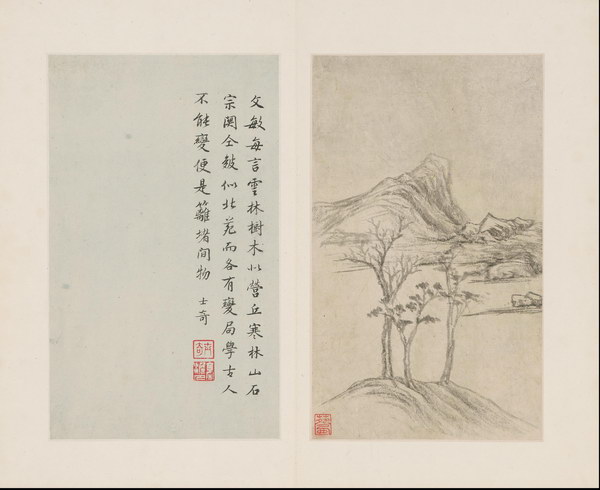 文敏每言雲林樹木似營丘寒林山石
宗関仝皴似北苑而各有變局學古人
不能變便是籬堵間物 士奇